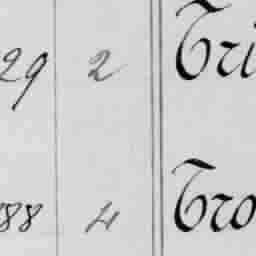 29 2 Tri
188 4 Tro